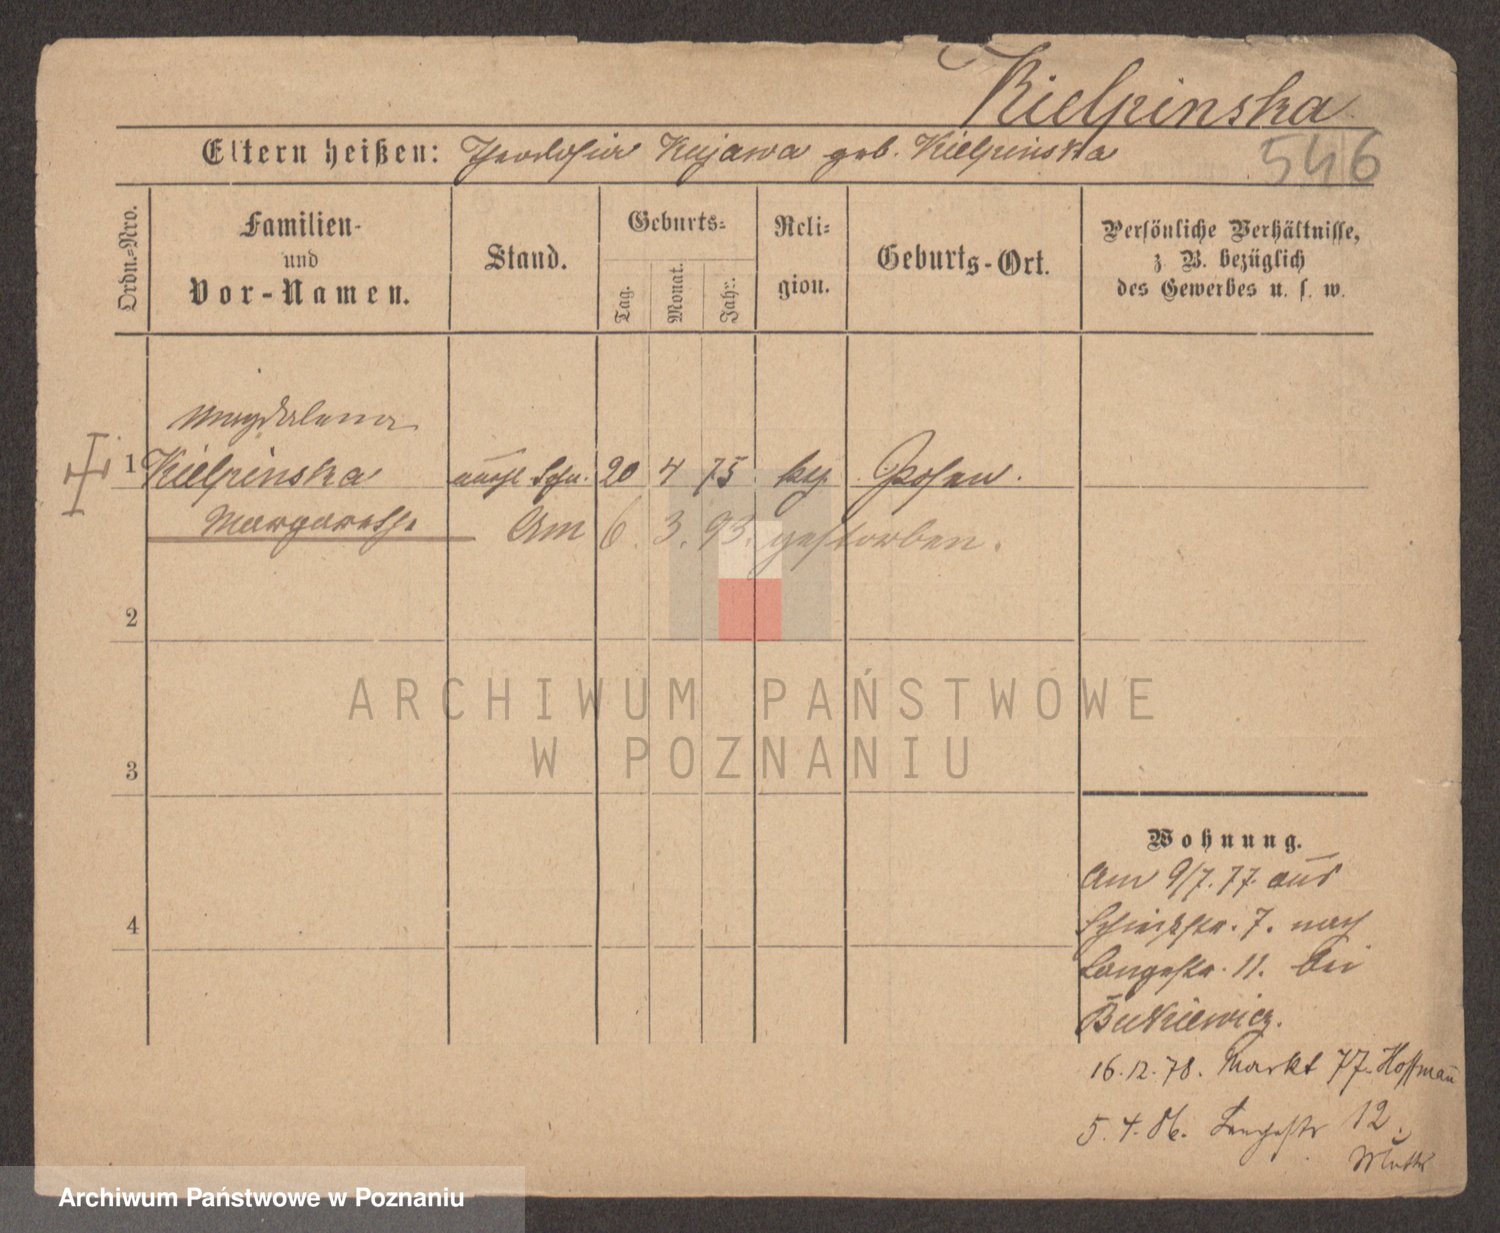 Kielpinska
546
Eltern heißen: Theodosia Kujawa geb. Kielpinska
Ordn.-Nro.
Familien-
und
Vor-Namen.
Stand.
Geburts-
Tag.
Monat.
Jahr.
Reli-
gion.
Geburts-Ort.
Persönliche Verhältnisse,
z B. bezüglich
des Gewerbes u. s. w.
Magdalena
1 Kielpinska 20 4 75 Posen.
Margarethe Am 6. 3. 93. gestorben.
2
3
4
Wohnung.
Am 9/7. 77. aus
7. nach
Langestr. 11. bei
Butkiewicz.
16. 12. 78. Markt 77. Hoffmann
5. 4. 86. Langestr 12.
Mutter
ARCHIWUM PAŃSTWOWE
W POZNANIU
Archiwum Państwowe w Poznaniu